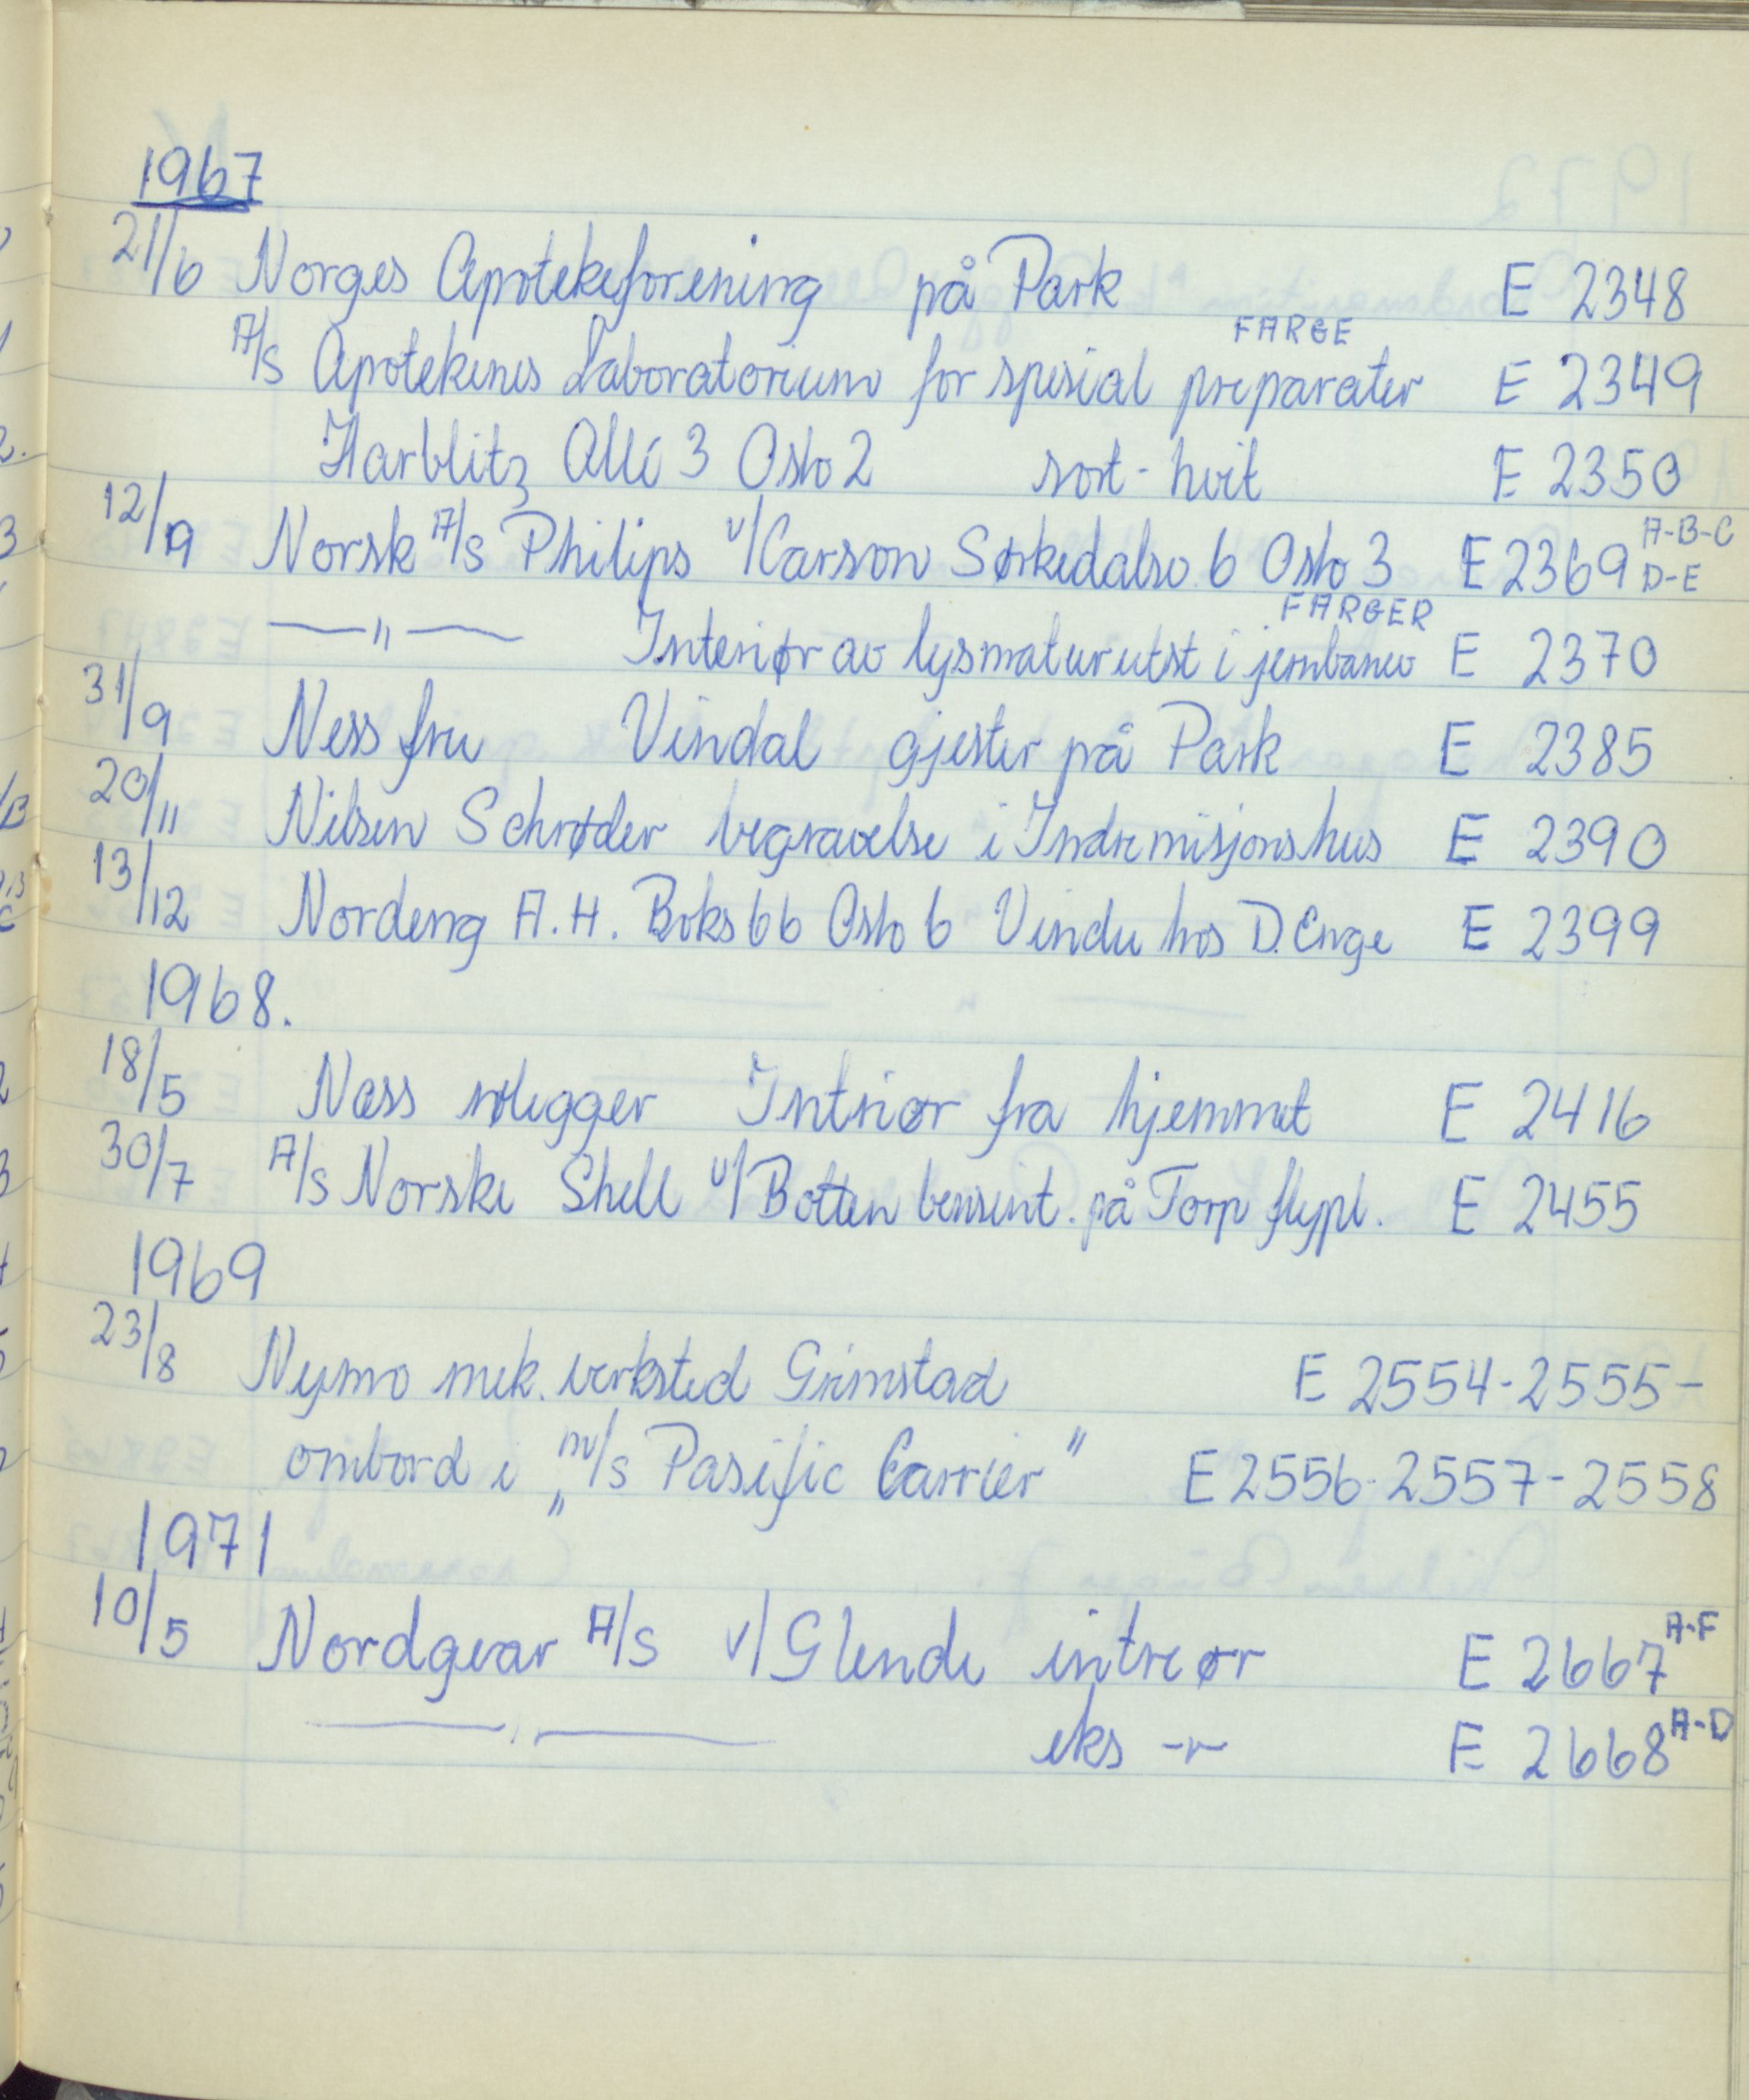 1967
21/6 Norges Apotekeforening på Park E 2348
FARGE
A/S Apotekenes Laboratorium for spesial preparater E 2349
Harblitz Allé 3 Oslo 2 sort-hvit E 2350
12/9 Norsk A/S Philips v/Carson Sørkedalsv. 6 Oslo 3 E 2369 A-B-C D-E
FARGER
—"— Interiør av lysmaturutst i jernbanev E 2370
31/9 Ness fru Vindal gjester på Park E 2385
20/11 Nilsen Schrøder begravelse i Indremisjonshus E 2390
13/12 Nordeng A.H. Boks 66 Oslo 6 Vindu hos D. Enge E 2399
1968.
18/5 Næss rølegger Intriør fra hjemmet E 2416
30/7 A/S Norske Shell v/Botten bensint. på Torp flypl. E 2455
1969
23/8 Nymo mek. verksted Grimstad E 2554-2555-
ombord i „m/s Pasific Carrier" E 2556-2557-2558
1971
10/5 Nordgear A/S v/Glende intreør E 2667 A-F
—"— eks -"- E 2668 A-D